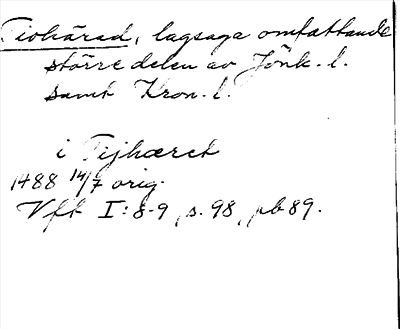 Tiohärad, lagsaga omfattande
större delen av Jönk. l.
samt Kron. l.
i Tijhæret
1488 14/7 orig.
Vft I:8-9, s. 98, pb 89.